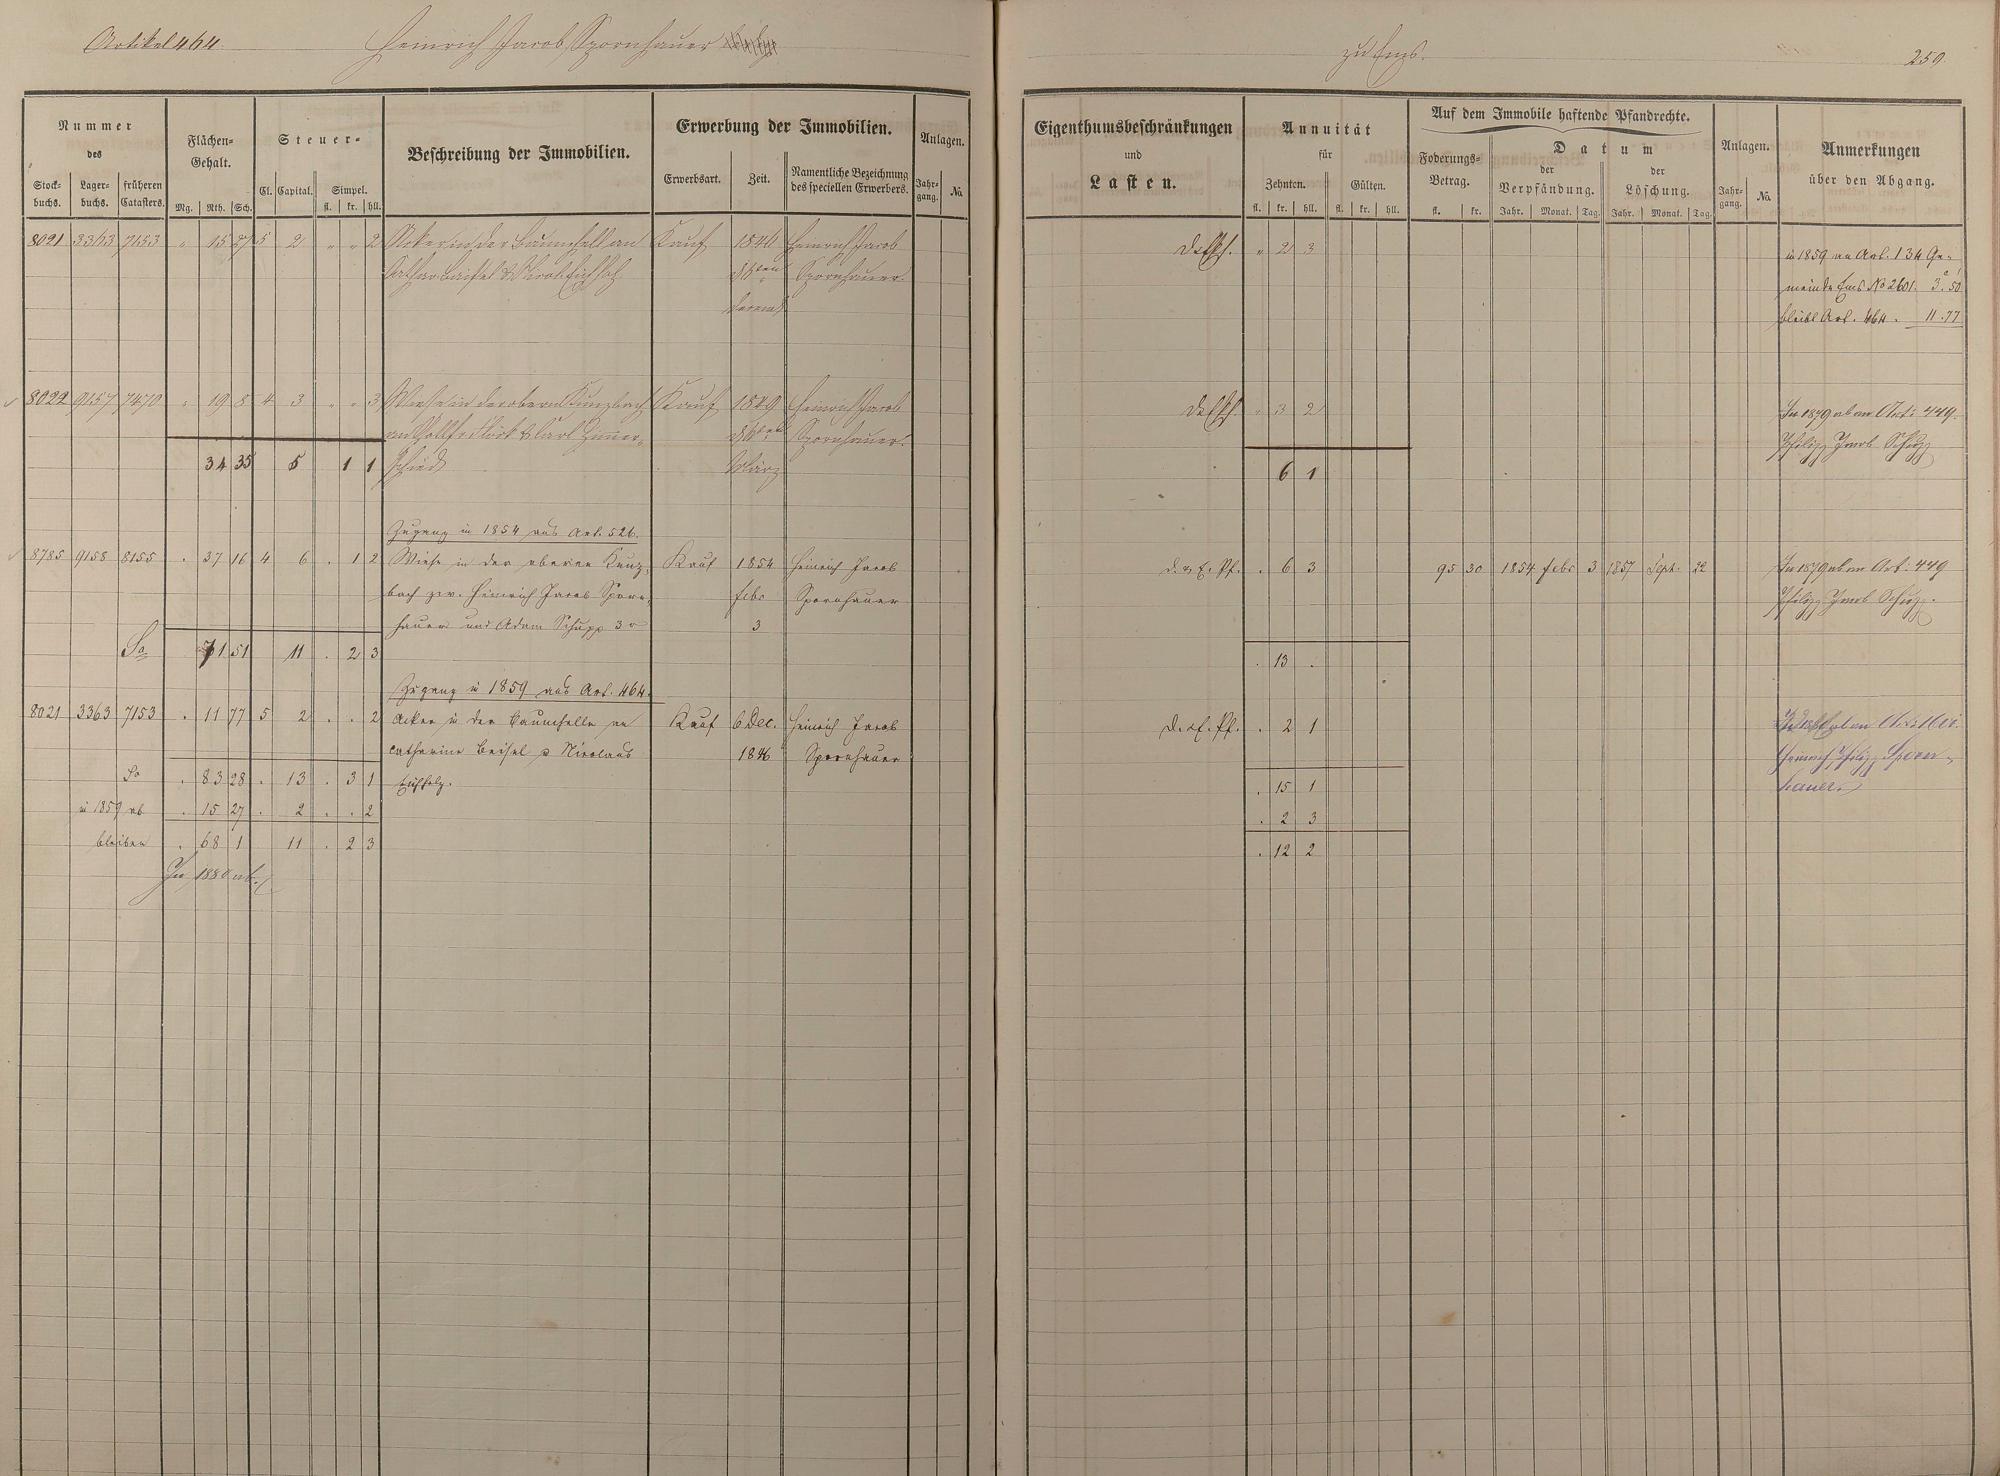 Artikel 464. Heinrich Jacob Spornhauer zu Ems. 259
Nummer des
Stock-buchs. Lager-buchs. früheren Catasters.
Flächen-Gehalt.
Mg. Rth. Sch.
Steuer-
Cl. Capital. Simpel.
fl. kr. hll.
Beschreibung der Immobilien.
Erwerbung der Immobilien.
Erwerbsart. Zeit. Namentliche Bezeichnung des speciellen Erwerbers.
Anlagen.
Jahr-gang. No.
Eigenthumsbeschränkungen
und
Lasten.
Annuität
für
Zehnten. Gülten.
fl. kr. hll. fl. kr. hll.
Auf dem Immobile haftende Pfandrechte.
Foderungs-Betrag.
fl. kr.
Datum
der Verpfändung. der Löschung.
Jahr. Monat. Tag. Jahr. Monat. Tag.
Anlagen.
Jahr-gang. No.
Anmerkungen
über den Abgang.
8021 3363 7153 " 15 27 5 2 " " 2 Acker in der Baumhell an Kauf 1846 Heinrich Jacob " 2 3 in 1859 an Art. 134 Ge-
6ten Spornhauer. meinde Ems No 2601. 3. 50
bleibt Art. 464. 11. 77
8022 9157 7470 " 19 8 4 3 " " 3 Wiese in der obern Kunzbach Kauf 1849 Heinrich Jacob " 3 2 In 1879 ab an Art: 449.
& Carl Zimmer- Spornhauer. Philipp Jacob Schupp
34 35 5 1 1 schied März 6 1
Zugang in 1854 aus Art. 526.
8785 9158 8155 . 37 16 4 6 . 1 2 Wiese in der oberen Kunz- Kauf 1854 Heinrich Jacob . 6 3 95 30 1854 Febr 3 1857 Sept. 22 In 1879 ab an Art: 449
bach zw. Heinrich Jacob Sporn- Febr Spornhauer Philipp Jacob Schupp.
hauer und Adam Schupp 3r 3
Sa 71 51 11 . 2 3 . 13 .
Zugang in 1859 aus Art. 464.
8021 3363 7153 . 11 77 5 2 . . 2 Acker in der Baumhelle an Kauf 6 Dec. Heinrich Jacob . 2 1
Catharine Beisel & Nicolaus 1846 Spornhauer Heinrich Philipp Sporn-
Sa . 83 28 . 13 . 3 1 Eichholz. . 15 1 hauer.
in 1859 ab . 15 27 . 2 . . 2 . 2 3
bleiben . 68 1 11 . 2 3 . 12 2
In 1880 ab.